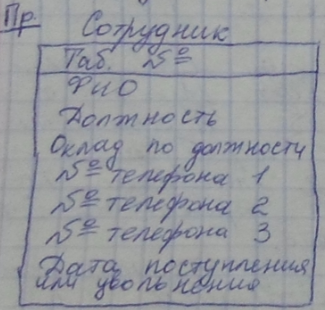 Пр.
Сотрудник
Таб. №
ФИО
Должность
Оклад по должности
№ телефона 1
№ телефона 2
№ телефона 3
Дата поступления
или увольнения